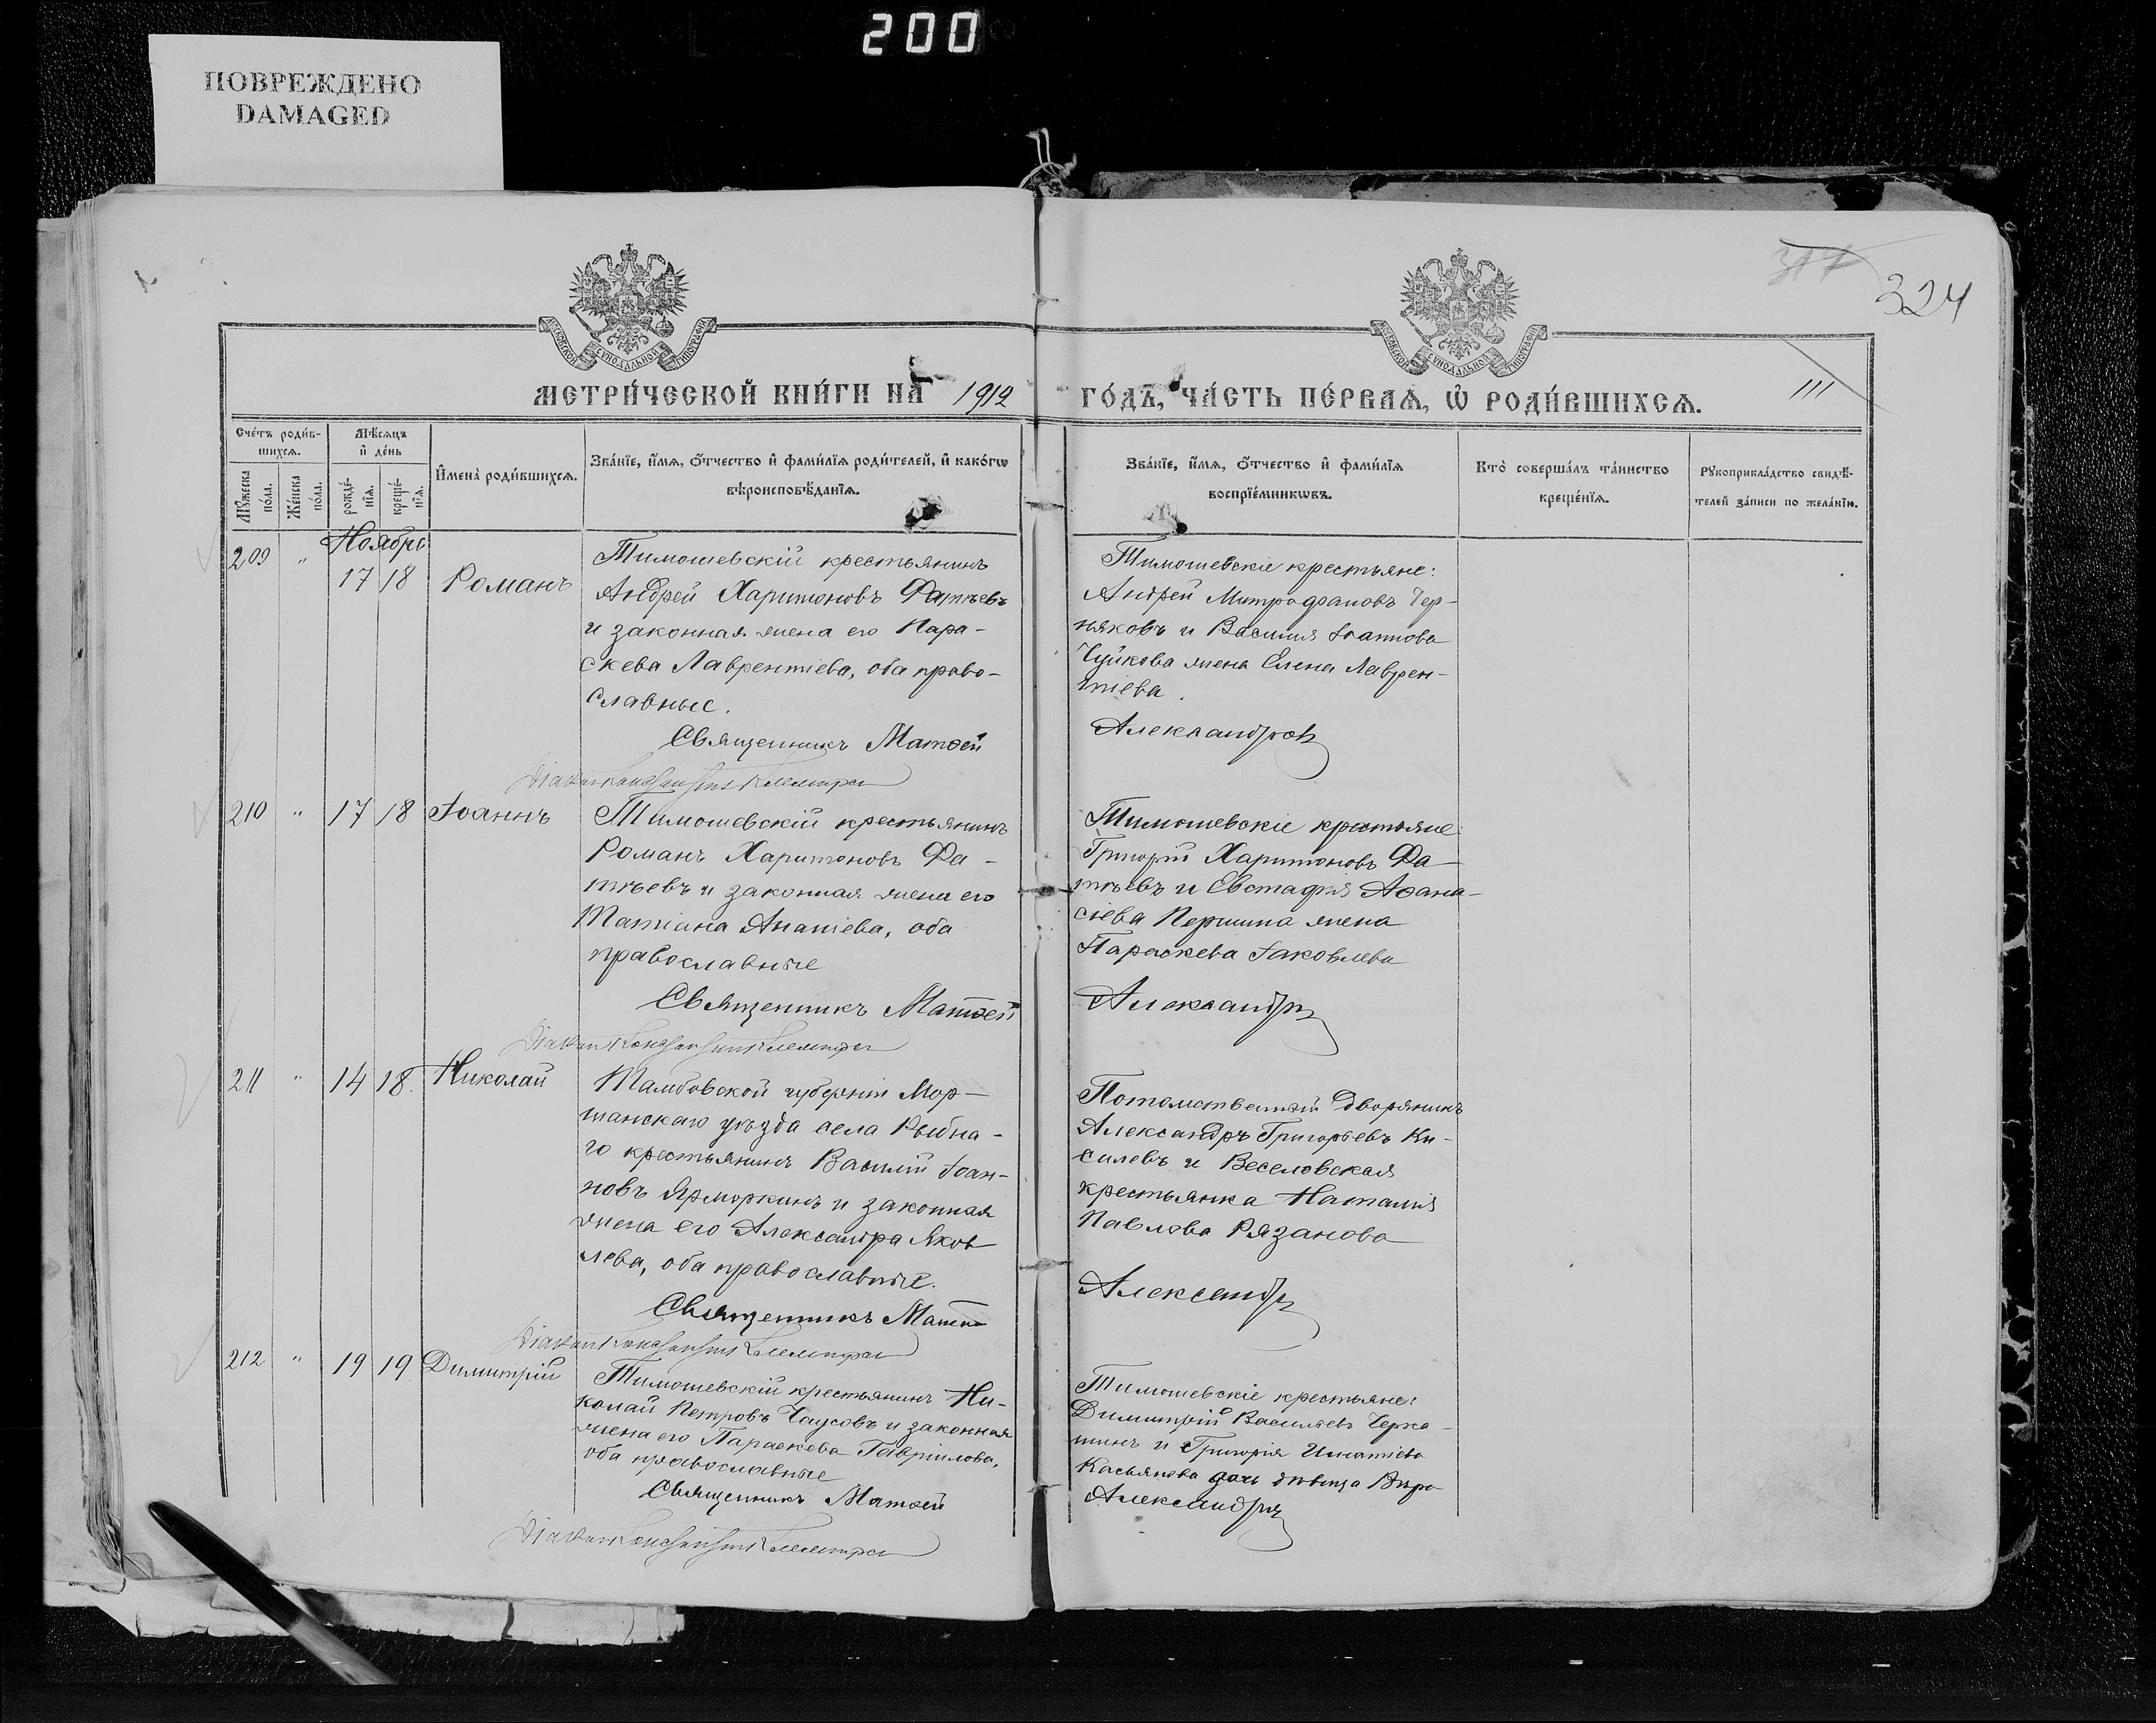 200
ПОВРЕЖДЕНО
DAMAGED
317
324
111
МОСКОВСКОЙ СѴНОДАЛЬНОЙ ТИПОГРАФІИ
МОСКОВСКОЙ СѴНОДАЛЬНОЙ ТИПОГРАФІИ
МЕТРИ́ЧЕСКОЙ КНИ́ГИ НА 1912 ГО́ДЪ, ЧА́СТЬ ПЕ́РВАѦ, Ѡ҆ РОДИ́ВШИХСѦ.
Сче́тъ роди́в-
шихсѧ.
Мꙋ́жеска по́ла.
Же́нска по́ла.
Мѣ́сѧцъ
и҆ де́нь
рожде́-
нїѧ.
креще́-
нїѧ.
И҆мена̀ роди́вшихсѧ.
Зва́нїе, и҆́мѧ, ѻ҆́тчество и҆ фами́лїѧ роди́телей, и҆ како́гѡ
вѣроисповѣ́данїѧ.
Зва́нїе, и҆́мѧ, ѻ҆́тчество и҆ фами́лїѧ
воспрїе́мникѡвъ.
Кто̀ соверша́лъ та́инство
креще́нїѧ.
Рꙋкоприкла́дство свидѣ́-
телей за́писи по жела́нїю.
Ноябрь
209 " 17 18 Романъ
Тимошевскій крестьянинъ
Андрей Харитоновъ Фатѣевъ
и законная жена его Пара-
скева Лаврентіева, оба право-
славные.
Священникъ Матѳей
Діаконъ Константинъ
Тимошевскіе крестьяне:
Андрей Митрофановъ Чер-
няковъ и Василія Іоаннова
Чуйкова жена Елена Лаврен-
тіева.
Александровъ
210 " 17 18 Іоаннъ
Тимошевскій крестьянинъ
Романъ Харитоновъ Фа-
тѣевъ и законная жена его
Татіана Ананіева, оба
православные
Священникъ Матѳей
Діаконъ Константинъ
Тимошевскіе крестьяне:
Григорій Харитоновъ Фа-
тѣевъ и Евстафія Аѳана-
сіева Першина жена
Параскева Іаковлева
Александръ
211 " 14 18. Николай
Тамбовской губерніи Мор-
шанскаго уѣзда села Рыбна-
го крестьянинъ Василій Іоан-
новъ Ярморкинъ и законная
жена его Александра Яков
лева, оба православные.
Священникъ Матѳ
Діаконъ Константинъ
Потомственный дворянинъ
Александръ Григорьевъ Ки-
силевъ и Веселовская
крестьянка Наталія
Павлова Рязанова
Александр
212 " 19 19 Димитрій
Тимошевскій крестьянинъ Ни-
колай Петровъ Чаусовъ и законная
жена его Параскева Гавріилова,
оба православные
Священникъ Матѳей
Діаконъ Константинъ
Тимошевскіе крестьяне:
Димитрій Васильевъ Черка-
шинъ и Григорія Игнатіева
Касьянова дочь дѣвица Вѣра
Александръ